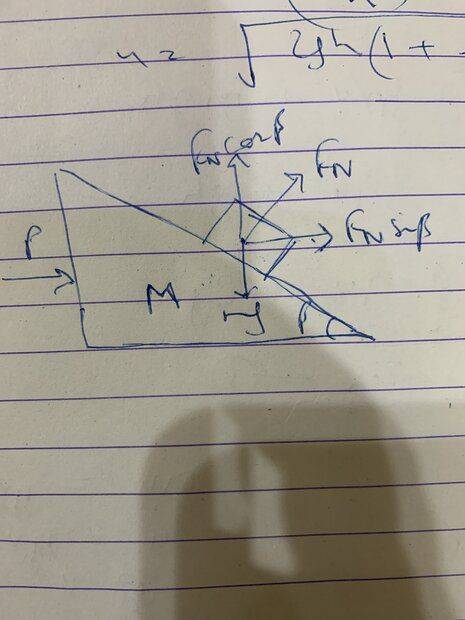 u = √2gh(1 +
FN cosβ
FN
FN sinβ
P
M
mg
β